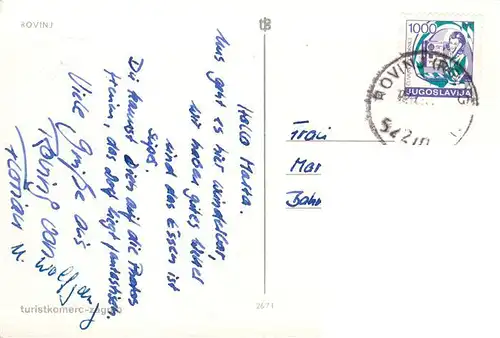 ROVINJ
Hallo Marta.
Uns geht es hier wunderbar,
wir haben gutes Wetter
und das Essen ist
super.
Du kannst Dich auf die Photos
freuen, das Dorf liegt fantastisch.
Viele Grüße aus
Rovinj von Wolfgang
Florian M.
turistkomerc-zagreb
2671
1000
JUGOSLAVIJA
ROVINJ
Frau
Mar
Bahn